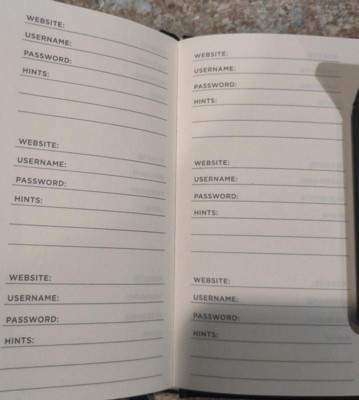 WEBSITE:
USERNAME:
PASSWORD:
HINTS:
WEBSITE:
USERNAME:
PASSWORD:
HINTS:
WEBSITE:
USERNAME:
PASSWORD:
HINTS:
WEBSITE:
USERNAME:
PASSWORD:
HINTS:
WEBSITE:
USERNAME:
PASSWORD:
HINTS:
WEBSITE:
USERNAME:
PASSWORD:
HINTS: